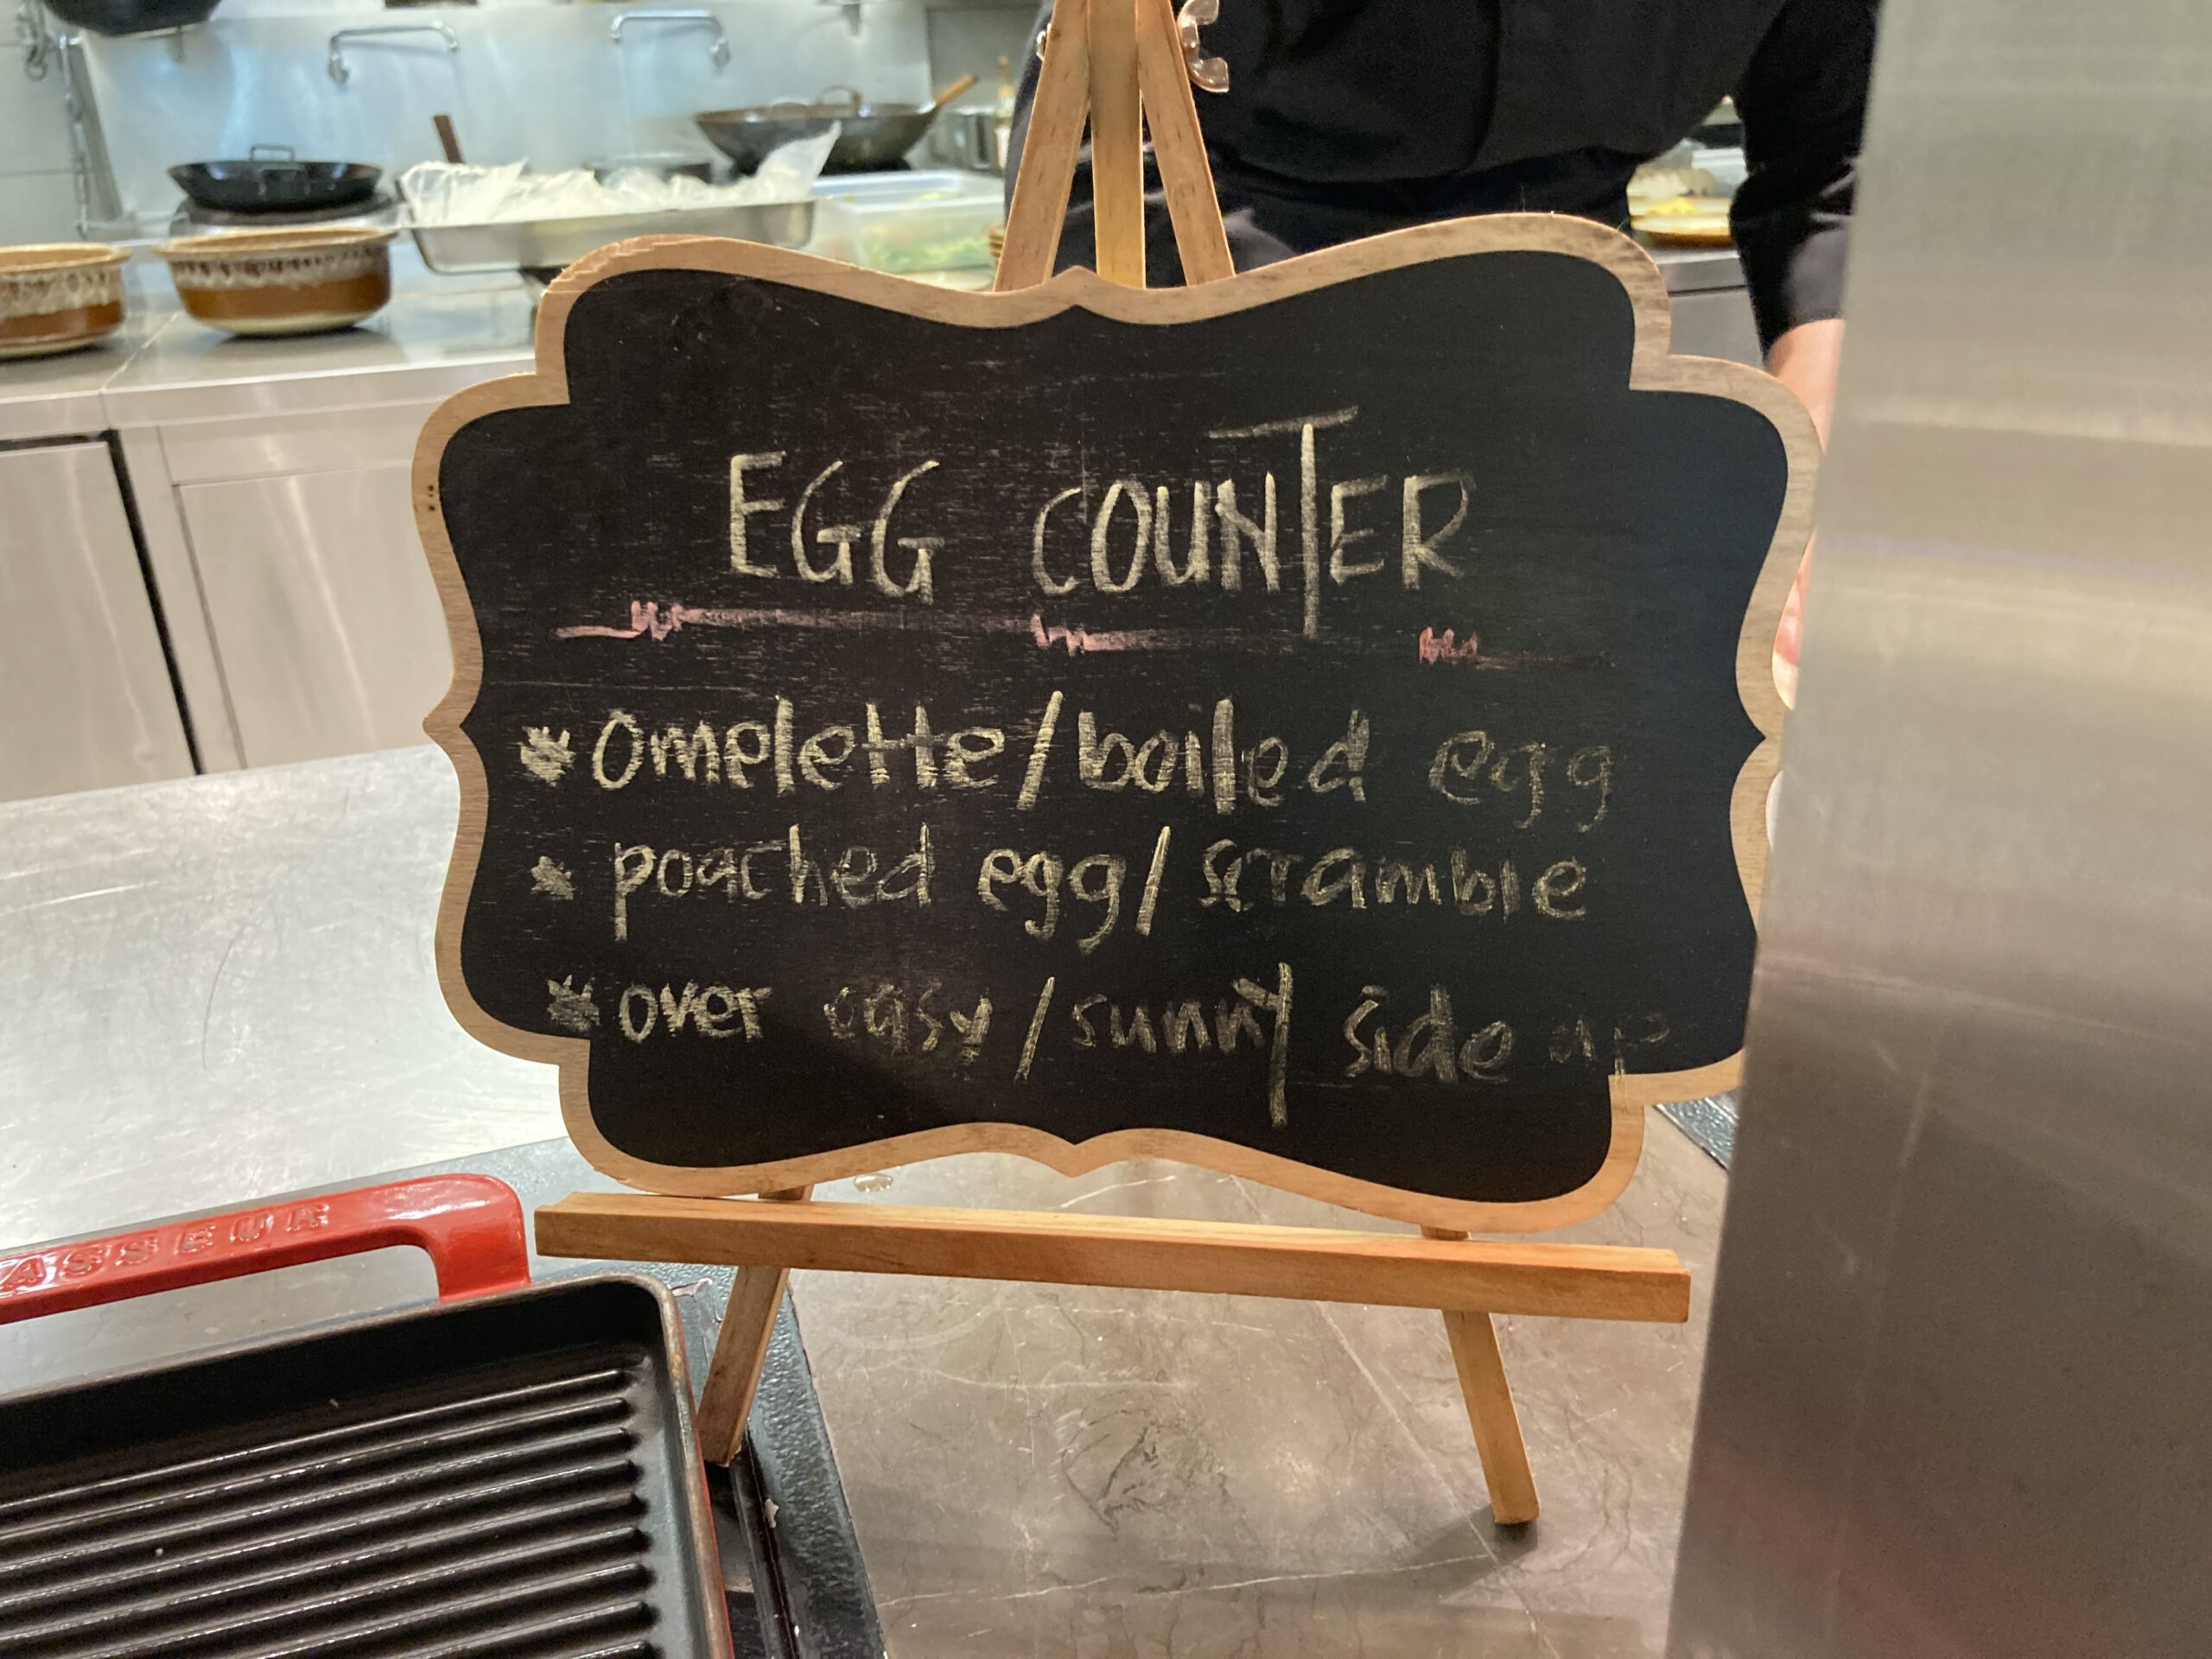 EGG COUNTER
* omelette/boiled egg
* poached egg/scramble
* over easy/sunny side up
ASSEUR